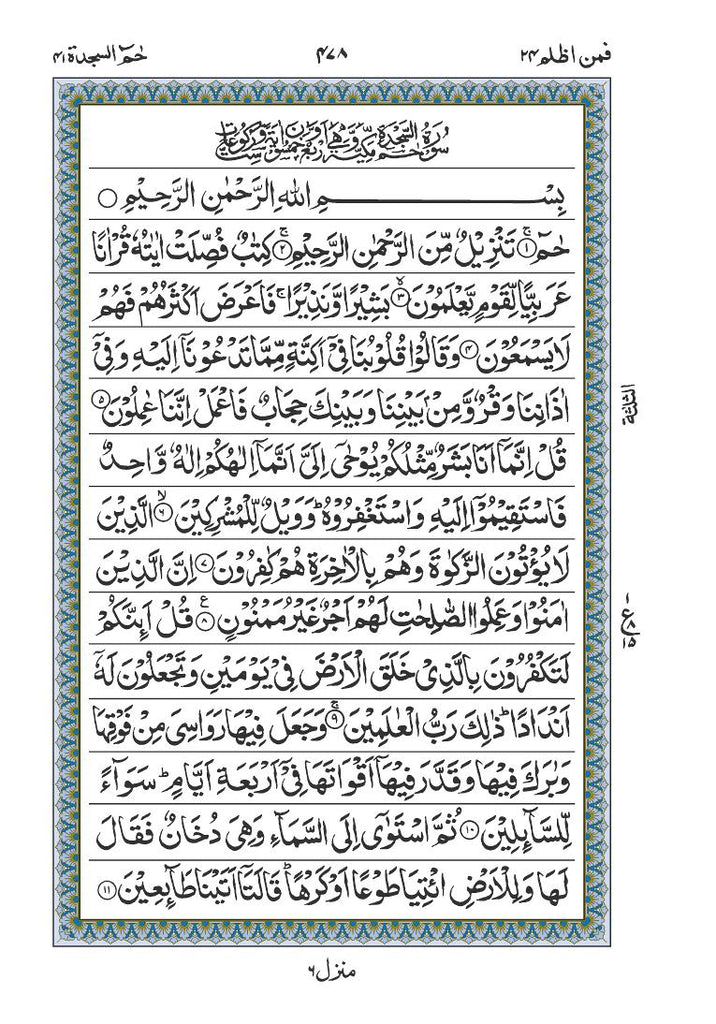 فمن اظلم ٢٤
٤٧٨
حٰمٓ السجدة ٤١
سُوۡرَةُ حٰمٓ السَّجۡدَةِ مَكِّيَّةٌ وَّهِىَ اَرۡبَعٌ وَّخَمۡسُوۡنَ اٰيَةً وَّسِتُّ رُكُوۡعَاتٍ
بِسۡمِ اللهِ الرَّحۡمٰنِ الرَّحِيۡمِ ○
حٰمٓ ۚ‏﴿١﴾ تَنۡزِيۡلٌ مِّنَ الرَّحۡمٰنِ الرَّحِيۡمِ ۚ‏﴿٢﴾ كِتٰبٌ فُصِّلَتۡ اٰيٰتُهٗ قُرۡاٰنًا
عَرَبِيًّا لِّقَوۡمٍ يَّعۡلَمُوۡنَ ۙ‏﴿٣﴾ بَشِيۡرًا وَّنَذِيۡرًا ۚ فَاَعۡرَضَ اَكۡثَرُهُمۡ فَهُمۡ
لَا يَسۡمَعُوۡنَ ‏﴿٤﴾ وَقَالُوۡا قُلُوۡبُنَا فِىۡۤ اَكِنَّةٍ مِّمَّا تَدۡعُوۡنَاۤ اِلَيۡهِ وَفِىۡۤ
اٰذَانِنَا وَقۡرٌ وَّمِنۡۢ بَيۡنِنَا وَبَيۡنِكَ حِجَابٌ فَاعۡمَلۡ اِنَّنَا عٰمِلُوۡنَ ‏﴿٥﴾
قُلۡ اِنَّمَاۤ اَنَا بَشَرٌ مِّثۡلُكُمۡ يُوۡحٰٓى اِلَىَّ اَنَّمَاۤ اِلٰهُكُمۡ اِلٰهٌ وَّاحِدٌ
فَاسۡتَقِيۡمُوۡۤا اِلَيۡهِ وَاسۡتَغۡفِرُوۡهُ ؕ وَوَيۡلٌ لِّلۡمُشۡرِكِيۡنَ ۙ‏﴿٦﴾ الَّذِيۡنَ
لَا يُؤۡتُوۡنَ الزَّكٰوةَ وَهُمۡ بِالۡاٰخِرَةِ هُمۡ كٰفِرُوۡنَ ‏﴿٧﴾ اِنَّ الَّذِيۡنَ
اٰمَنُوۡا وَعَمِلُوا الصّٰلِحٰتِ لَهُمۡ اَجۡرٌ غَيۡرُ مَمۡنُوۡنٍ ‏﴿٨﴾ ع قُلۡ اَٮِٕنَّكُمۡ
لَتَكۡفُرُوۡنَ بِالَّذِىۡ خَلَقَ الۡاَرۡضَ فِىۡ يَوۡمَيۡنِ وَتَجۡعَلُوۡنَ لَهٗۤ
اَنۡدَادًا ؕ ذٰلِكَ رَبُّ الۡعٰلَمِيۡنَ ۚ‏﴿٩﴾ وَجَعَلَ فِيۡهَا رَوَاسِىَ مِنۡ فَوۡقِهَا
وَبٰرَكَ فِيۡهَا وَقَدَّرَ فِيۡهَاۤ اَقۡوَاتَهَا فِىۡۤ اَرۡبَعَةِ اَيَّامٍ ؕ سَوَآءً
لِّلسَّآٮِٕلِيۡنَ ‏﴿١٠﴾ ثُمَّ اسۡتَوٰٓى اِلَى السَّمَآءِ وَهِىَ دُخَانٌ فَقَالَ
لَهَا وَلِلۡاَرۡضِ ائۡتِيَا طَوۡعًا اَوۡ كَرۡهًا ؕ قَالَتَاۤ اَتَيۡنَا طَآٮِٕعِيۡنَ ‏﴿١١﴾
الثلثة
منزل ٦